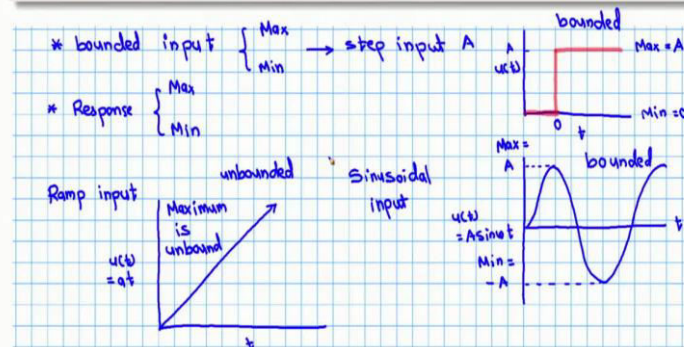 * bounded input { Max Min → step input A
* Response { Max Min
bounded
A
u(t)
Max = A
Min = 0
0
t
Ramp input
unbounded
Maximum
is
unbound
u(t)
= at
t
Sinusoidal
input
Max =
A
bounded
u(t)
= Asinωt
t
Min =
-A